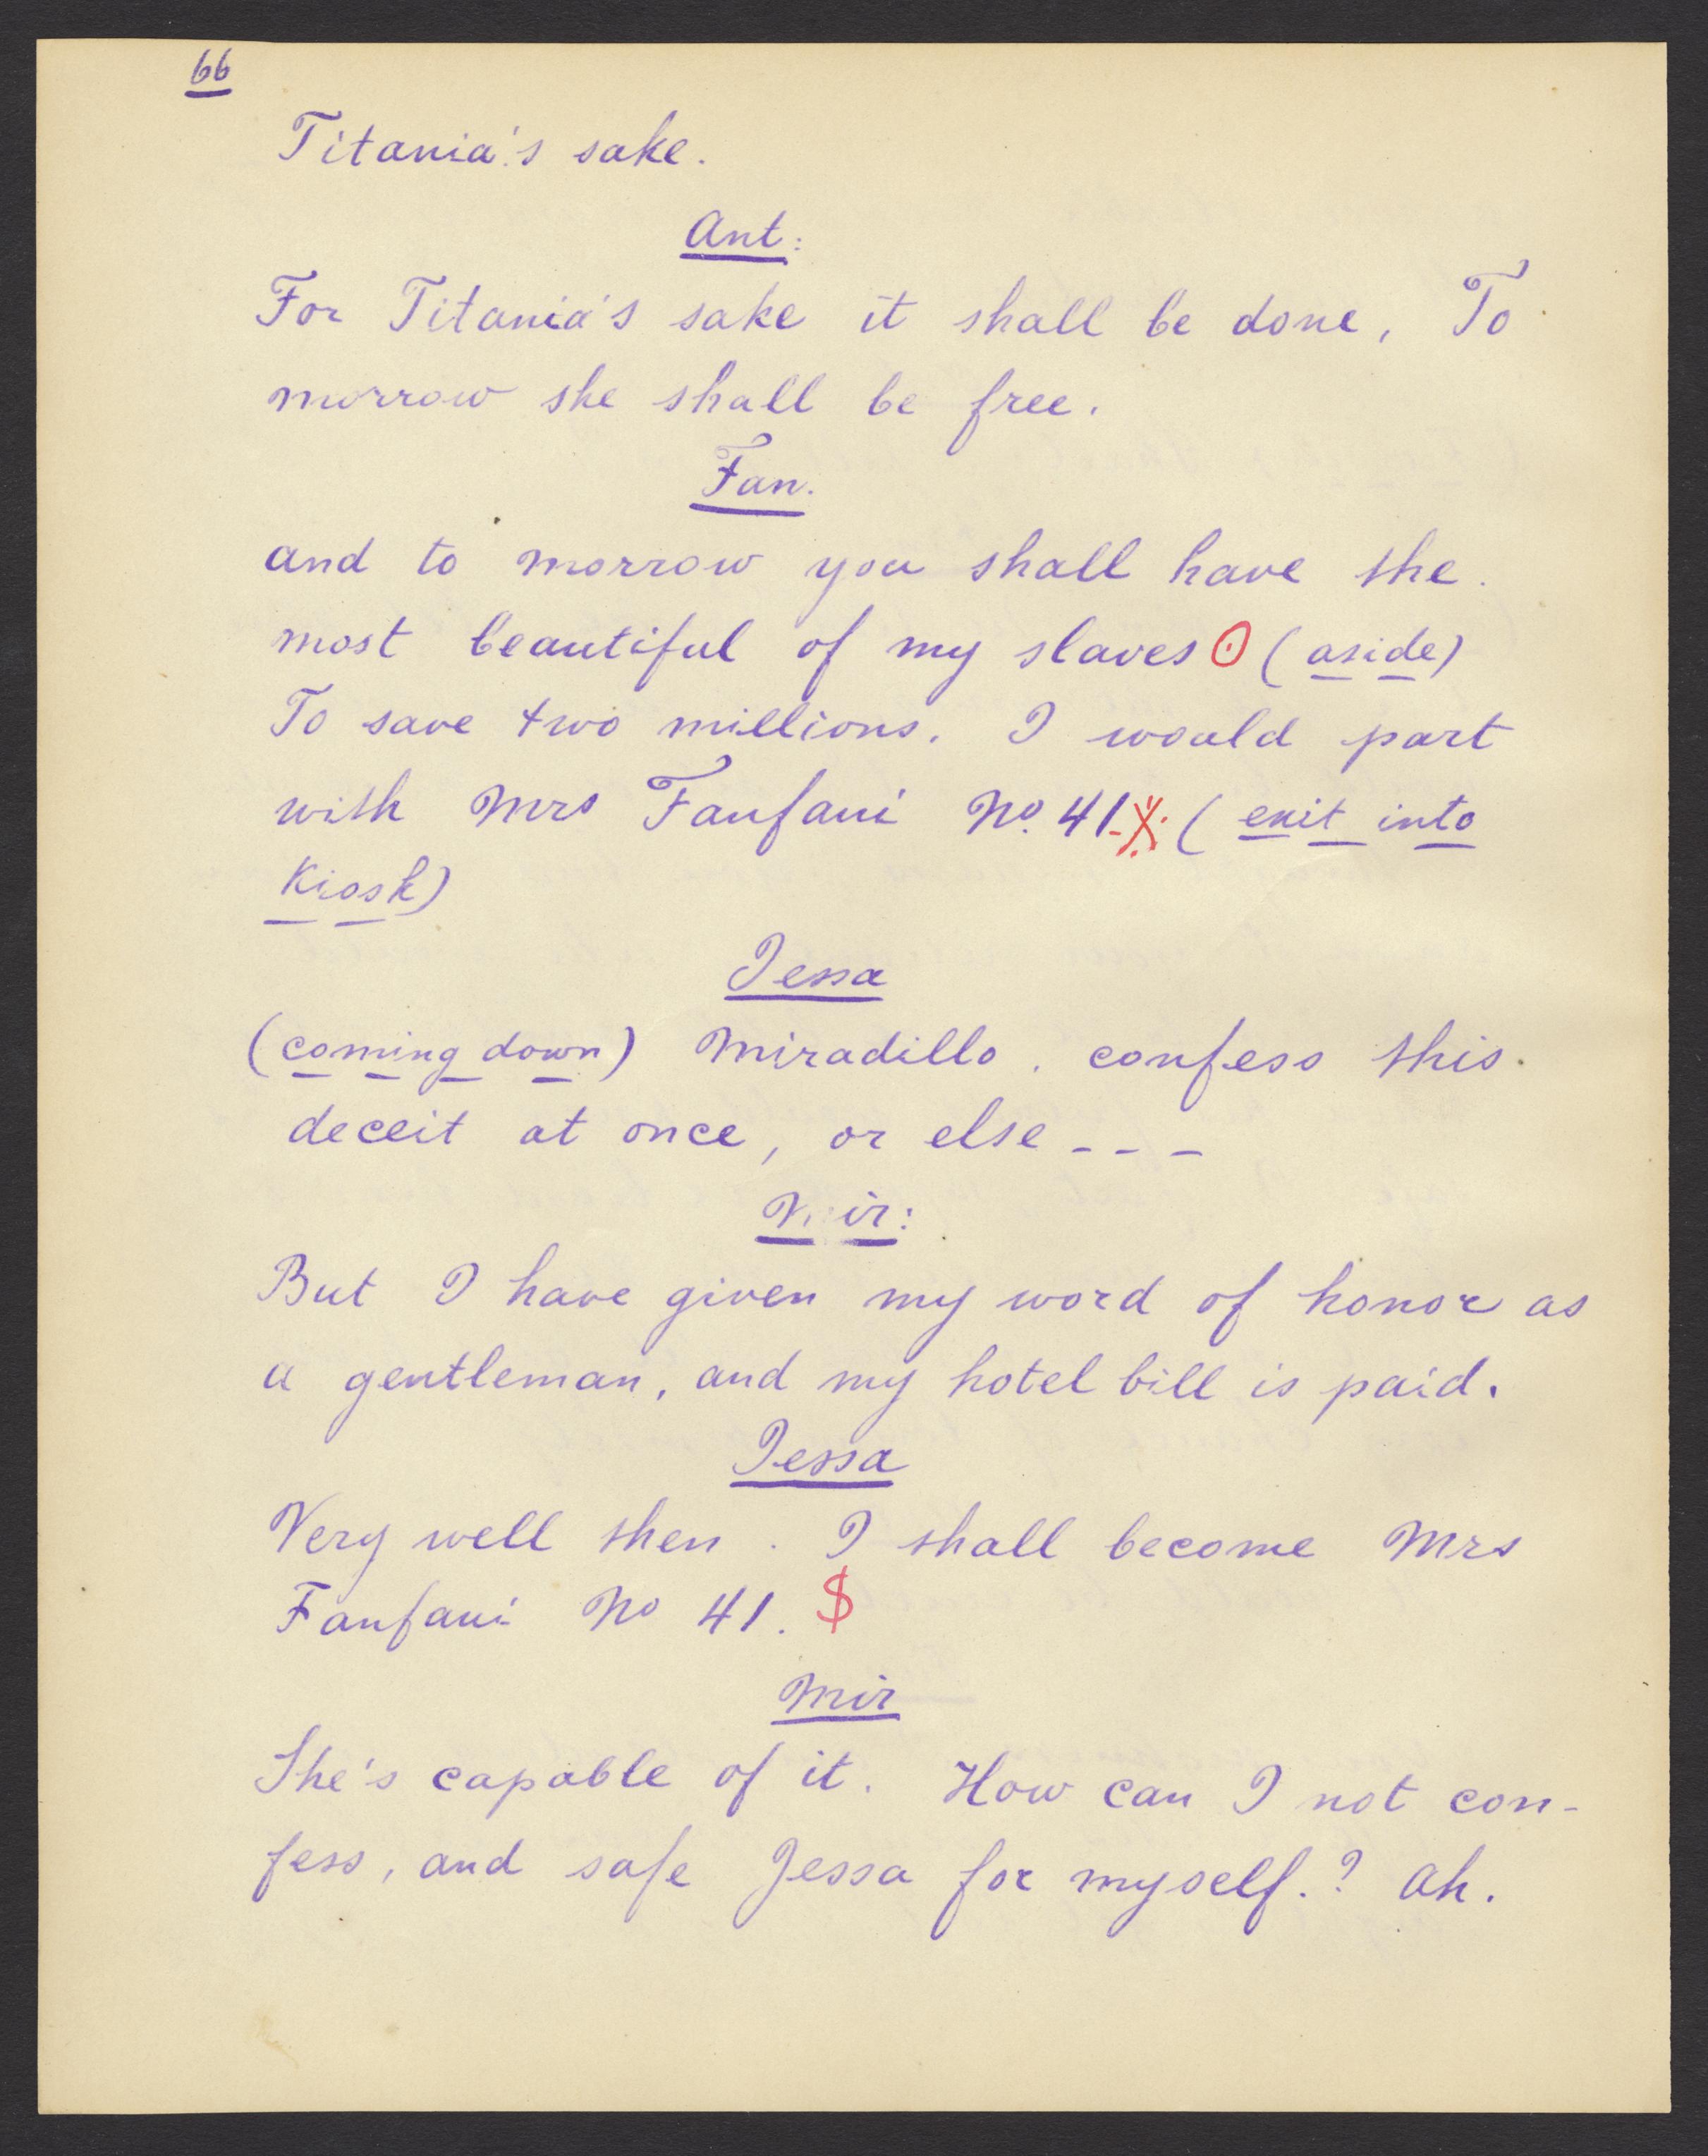 66
Titania's sake.
Ant:
For Titania's sake it shall be done, To
morrow she shall be free.
Fan.
and to morrow you shall have the
most beautiful of my slaves (aside)
To save two millions. I would part
with Mrs Fanfani No. 41 (exit into
Kiosk)
Jessa
(coming down) Miradillo, confess this
deceit at once, or else - - -
Mir:
But I have given my word of honor as
a gentleman, and my hotel bill is paid.
Jessa
Very well then. I shall become Mrs
Fanfani No 41. $
Mir
She's capable of it. How can I not con-
fess, and safe Jessa for myself.? Ah.